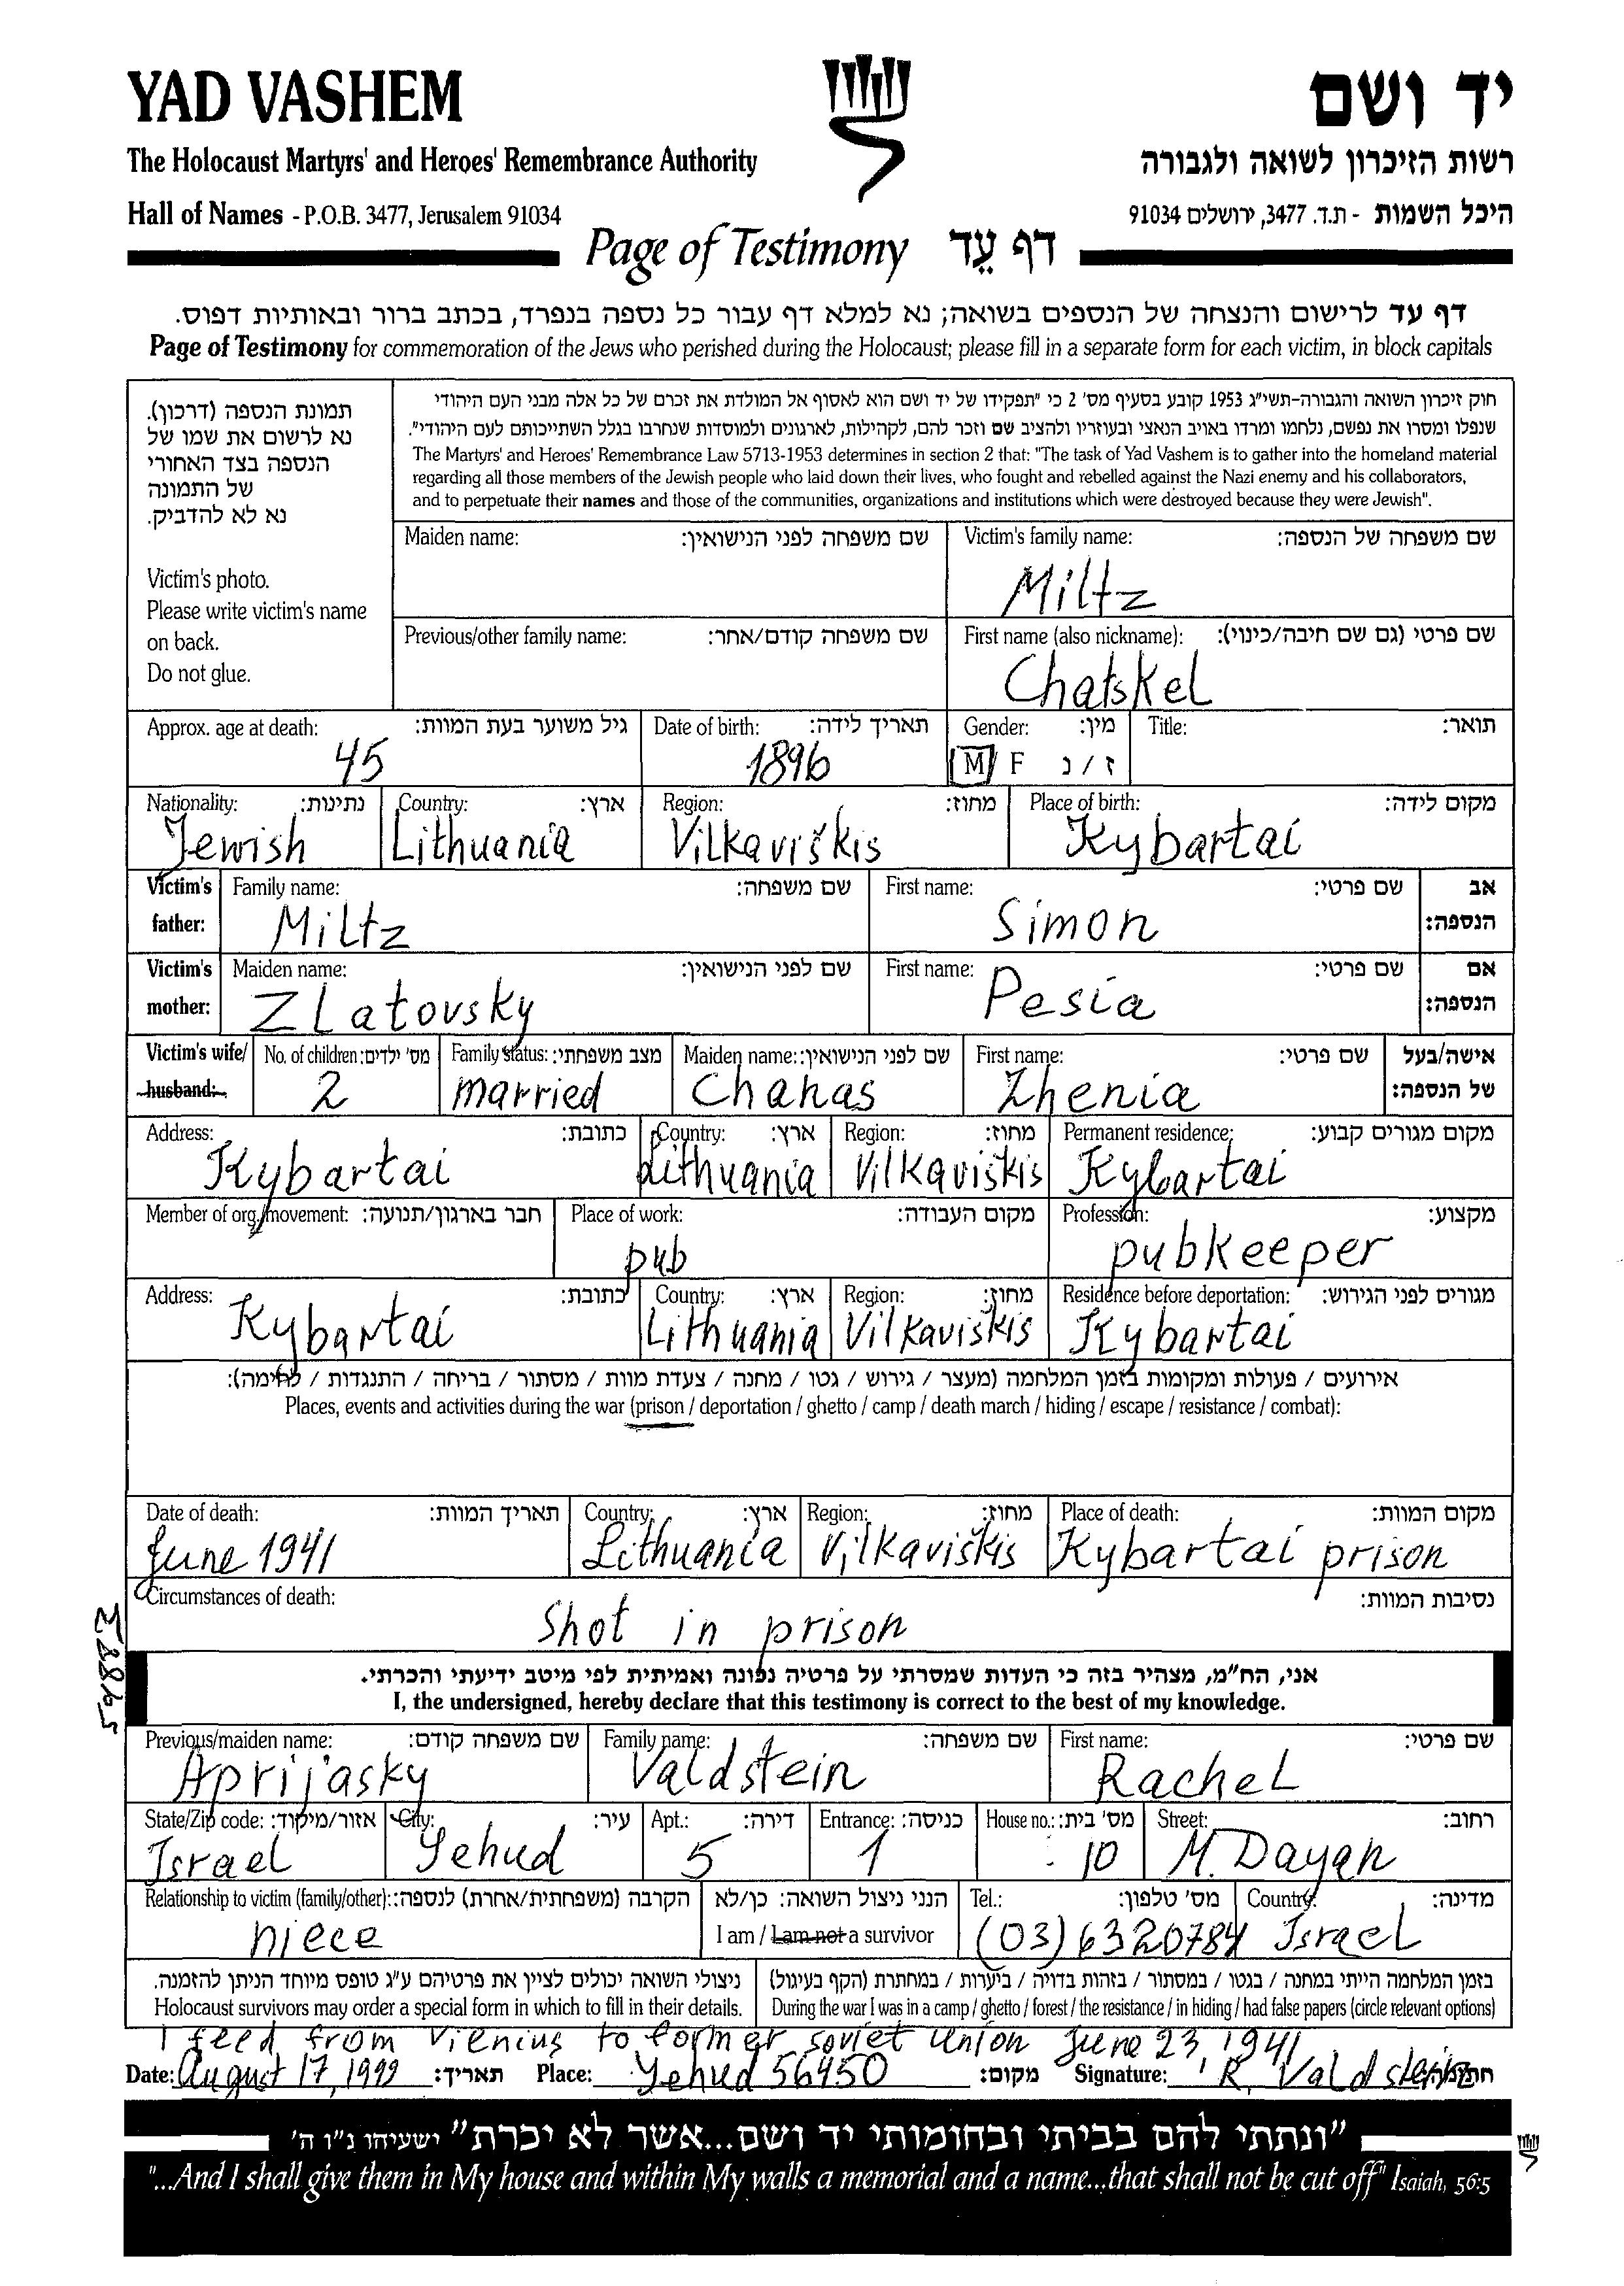 YAD VASHEM
יד ושם
The Holocaust Martyrs' and Heroes' Remembrance Authority
רשות הזיכרון לשואה ולגבורה
Hall of Names - P.O.B. 3477, Jerusalem 91034
היכל השמות - ת.ד. 3477, ירושלים 91034
Page of Testimony דף עֵד
דף עד לרישום והנצחה של הנספים בשואה; נא למלא דף עבור כל נספה בנפרד, בכתב ברור ובאותיות דפוס.
Page of Testimony for commemoration of the Jews who perished during the Holocaust; please fill in a separate form for each victim, in block capitals
תמונת הנספה (דרכון).
נא לרשום את שמו של
הנספה בצד האחורי
של התמונה
נא לא להדביק.
Victim's photo.
Please write victim's name
on back.
Do not glue.
חוק זיכרון השואה והגבורה-תשי"ג 1953 קובע בסעיף מס' 2 כי "תפקידו של יד ושם הוא לאסוף אל המולדת את זכרם של כל אלה מבני העם היהודי
שנפלו ומסרו את נפשם, נלחמו ומרדו באויב הנאצי ובעוזריו ולהציב שם וזכר להם, לקהילות, לארגונים ולמוסדות שנחרבו בגלל השתייכותם לעם היהודי".
The Martyrs' and Heroes' Remembrance Law 5713-1953 determines in section 2 that: "The task of Yad Vashem is to gather into the homeland material
regarding all those members of the Jewish people who laid down their lives, who fought and rebelled against the Nazi enemy and his collaborators,
and to perpetuate their names and those of the communities, organizations and institutions which were destroyed because they were Jewish".
Maiden name: שם משפחה לפני הנישואין: Victim's family name: שם משפחה של הנספה:
Miltz
Previous/other family name: שם משפחה קודם/אחר: First name (also nickname): שם פרטי (גם שם חיבה/כינוי):
Chatskel
Approx. age at death: גיל משוער בעת המוות: Date of birth: תאריך לידה: Gender: מין: Title: תואר:
45 1896 M F ז / נ
Nationality: נתינות: Country: ארץ: Region: מחוז: Place of birth: מקום לידה:
Jewish Lithuania Vilkaviškis Kybartai
Victim's Family name: שם משפחה: First name: שם פרטי: אב
father: Miltz Simon הנספה:
Victim's Maiden name: שם לפני הנישואין: First name: שם פרטי: אם
mother: Zlatovsky Pesia הנספה:
Victim's wife/ No. of children: מס' ילדים: Family status: מצב משפחתי: Maiden name: שם לפני הנישואין: First name: שם פרטי: אישה/בעל
husband: 2 married Chahas Zhenia של הנספה:
Address: כתובת: Country: ארץ: Region: מחוז: Permanent residence: מקום מגורים קבוע:
Kybartai Lithuania Vilkaviškis Kybartai
Member of org./movement: חבר בארגון/תנועה: Place of work: מקום העבודה: Profession: מקצוע:
pub pubkeeper
Address: כתובת: Country: ארץ: Region: מחוז: Residence before deportation: מגורים לפני הגירוש:
Kybartai Lithuania Vilkaviškis Kybartai
אירועים / פעולות ומקומות בזמן המלחמה (מעצר / גירוש / גטו / מחנה / צעדת מוות / מסתור / בריחה / התנגדות / לחימה):
Places, events and activities during the war (prison / deportation / ghetto / camp / death march / hiding / escape / resistance / combat):
Date of death: תאריך המוות: Country: ארץ: Region: מחוז: Place of death: מקום המוות:
June 1941 Lithuania Vilkaviškis Kybartai prison
Circumstances of death: נסיבות המוות:
Shot in prison
אני, הח"מ, מצהיר בזה כי העדות שמסרתי על פרטיה נכונה ואמיתית לפי מיטב ידיעתי והכרתי.
I, the undersigned, hereby declare that this testimony is correct to the best of my knowledge.
Previous/maiden name: שם משפחה קודם: Family name: שם משפחה: First name: שם פרטי:
Aprijasky Valdstein Rachel
State/Zip code: אזור/מיקוד: City: עיר: Apt.: דירה: Entrance: כניסה: House no.: מס' בית: Street: רחוב:
Israel Yehud 5 1 10 M. Dayan
Relationship to victim (family/other): הקרבה (משפחתית/אחרת) לנספה: הנני ניצול השואה: כן/לא Tel.: מס' טלפון: Country: מדינה:
niece I am / I am not a survivor (03)6320784 Israel
ניצולי השואה יכולים לציין את פרטיהם ע"ג טופס מיוחד הניתן להזמנה. בזמן המלחמה הייתי במחנה / בגטו / במסתור / בזהות בדויה / ביערות / במחתרת (הקף בעיגול)
Holocaust survivors may order a special form in which to fill in their details. During the war I was in a camp / ghetto / forest / the resistance / in hiding / had false papers (circle relevant options)
I feed from Vienius to former soviet union June 23, 1941
Date: August 17, 1999 תאריך: Place: Yehud 56450 מקום: Signature: R. Valdstein
"ונתתי להם בביתי ובחומותי יד ושם...אשר לא יכרת" ישעיהו נ"ו ה'
"...And I shall give them in My house and within My walls a memorial and a name...that shall not be cut off" Isaiah, 56:5